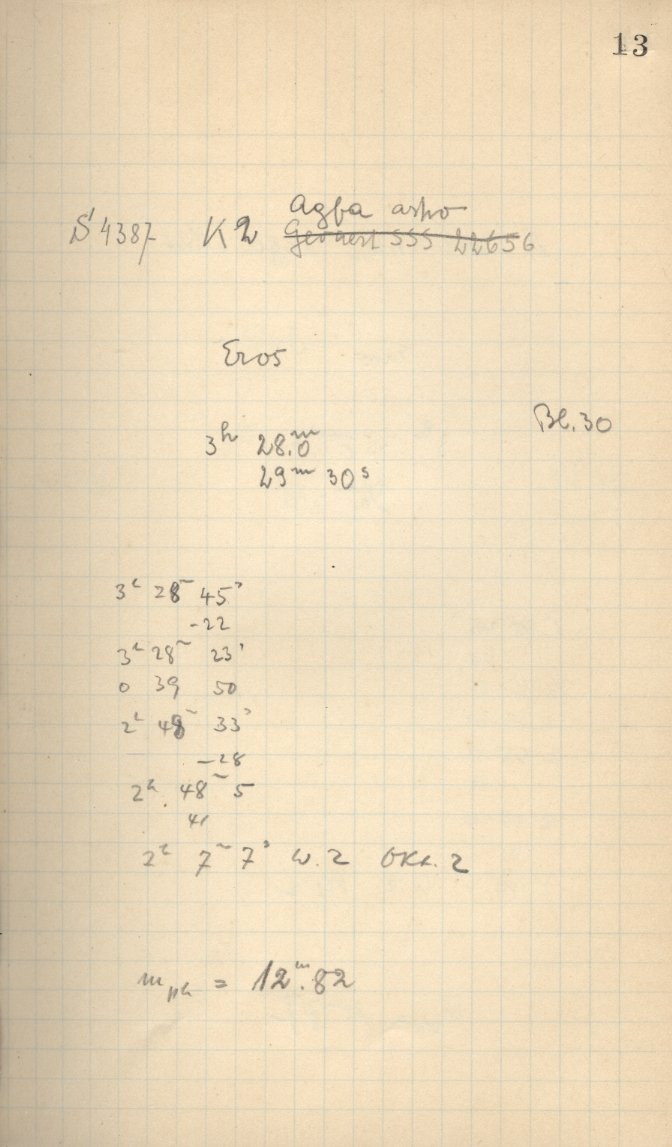 13
Agfa astro
S 4387 K2 Gevaert SSS 22656
Eros
Bl. 30
3h 28.m0
29m 30s
3h 28m 45s
-22
3h 28m 23s
0 39 50
2h 48m 33s
-28
2h 48m 5
41
2h 7m 7s W. 2 Okt. 2
mph = 12m.82